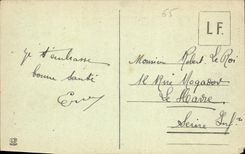 55
L F.
Je t'embrasse
bonne santé
Monsieur Robert Le Roi
Rue Mogador
Le Havre
Seine Infre